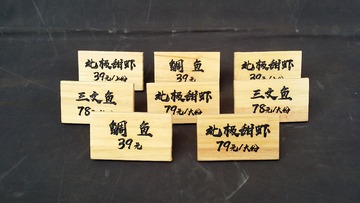 北极甜虾
39元/小份
鲷鱼
39元
北极甜虾
39元/小份
三文鱼
78
北极甜虾
79元/大份
三文鱼
78元/大份
鲷鱼
39元
北极甜虾
79元/大份